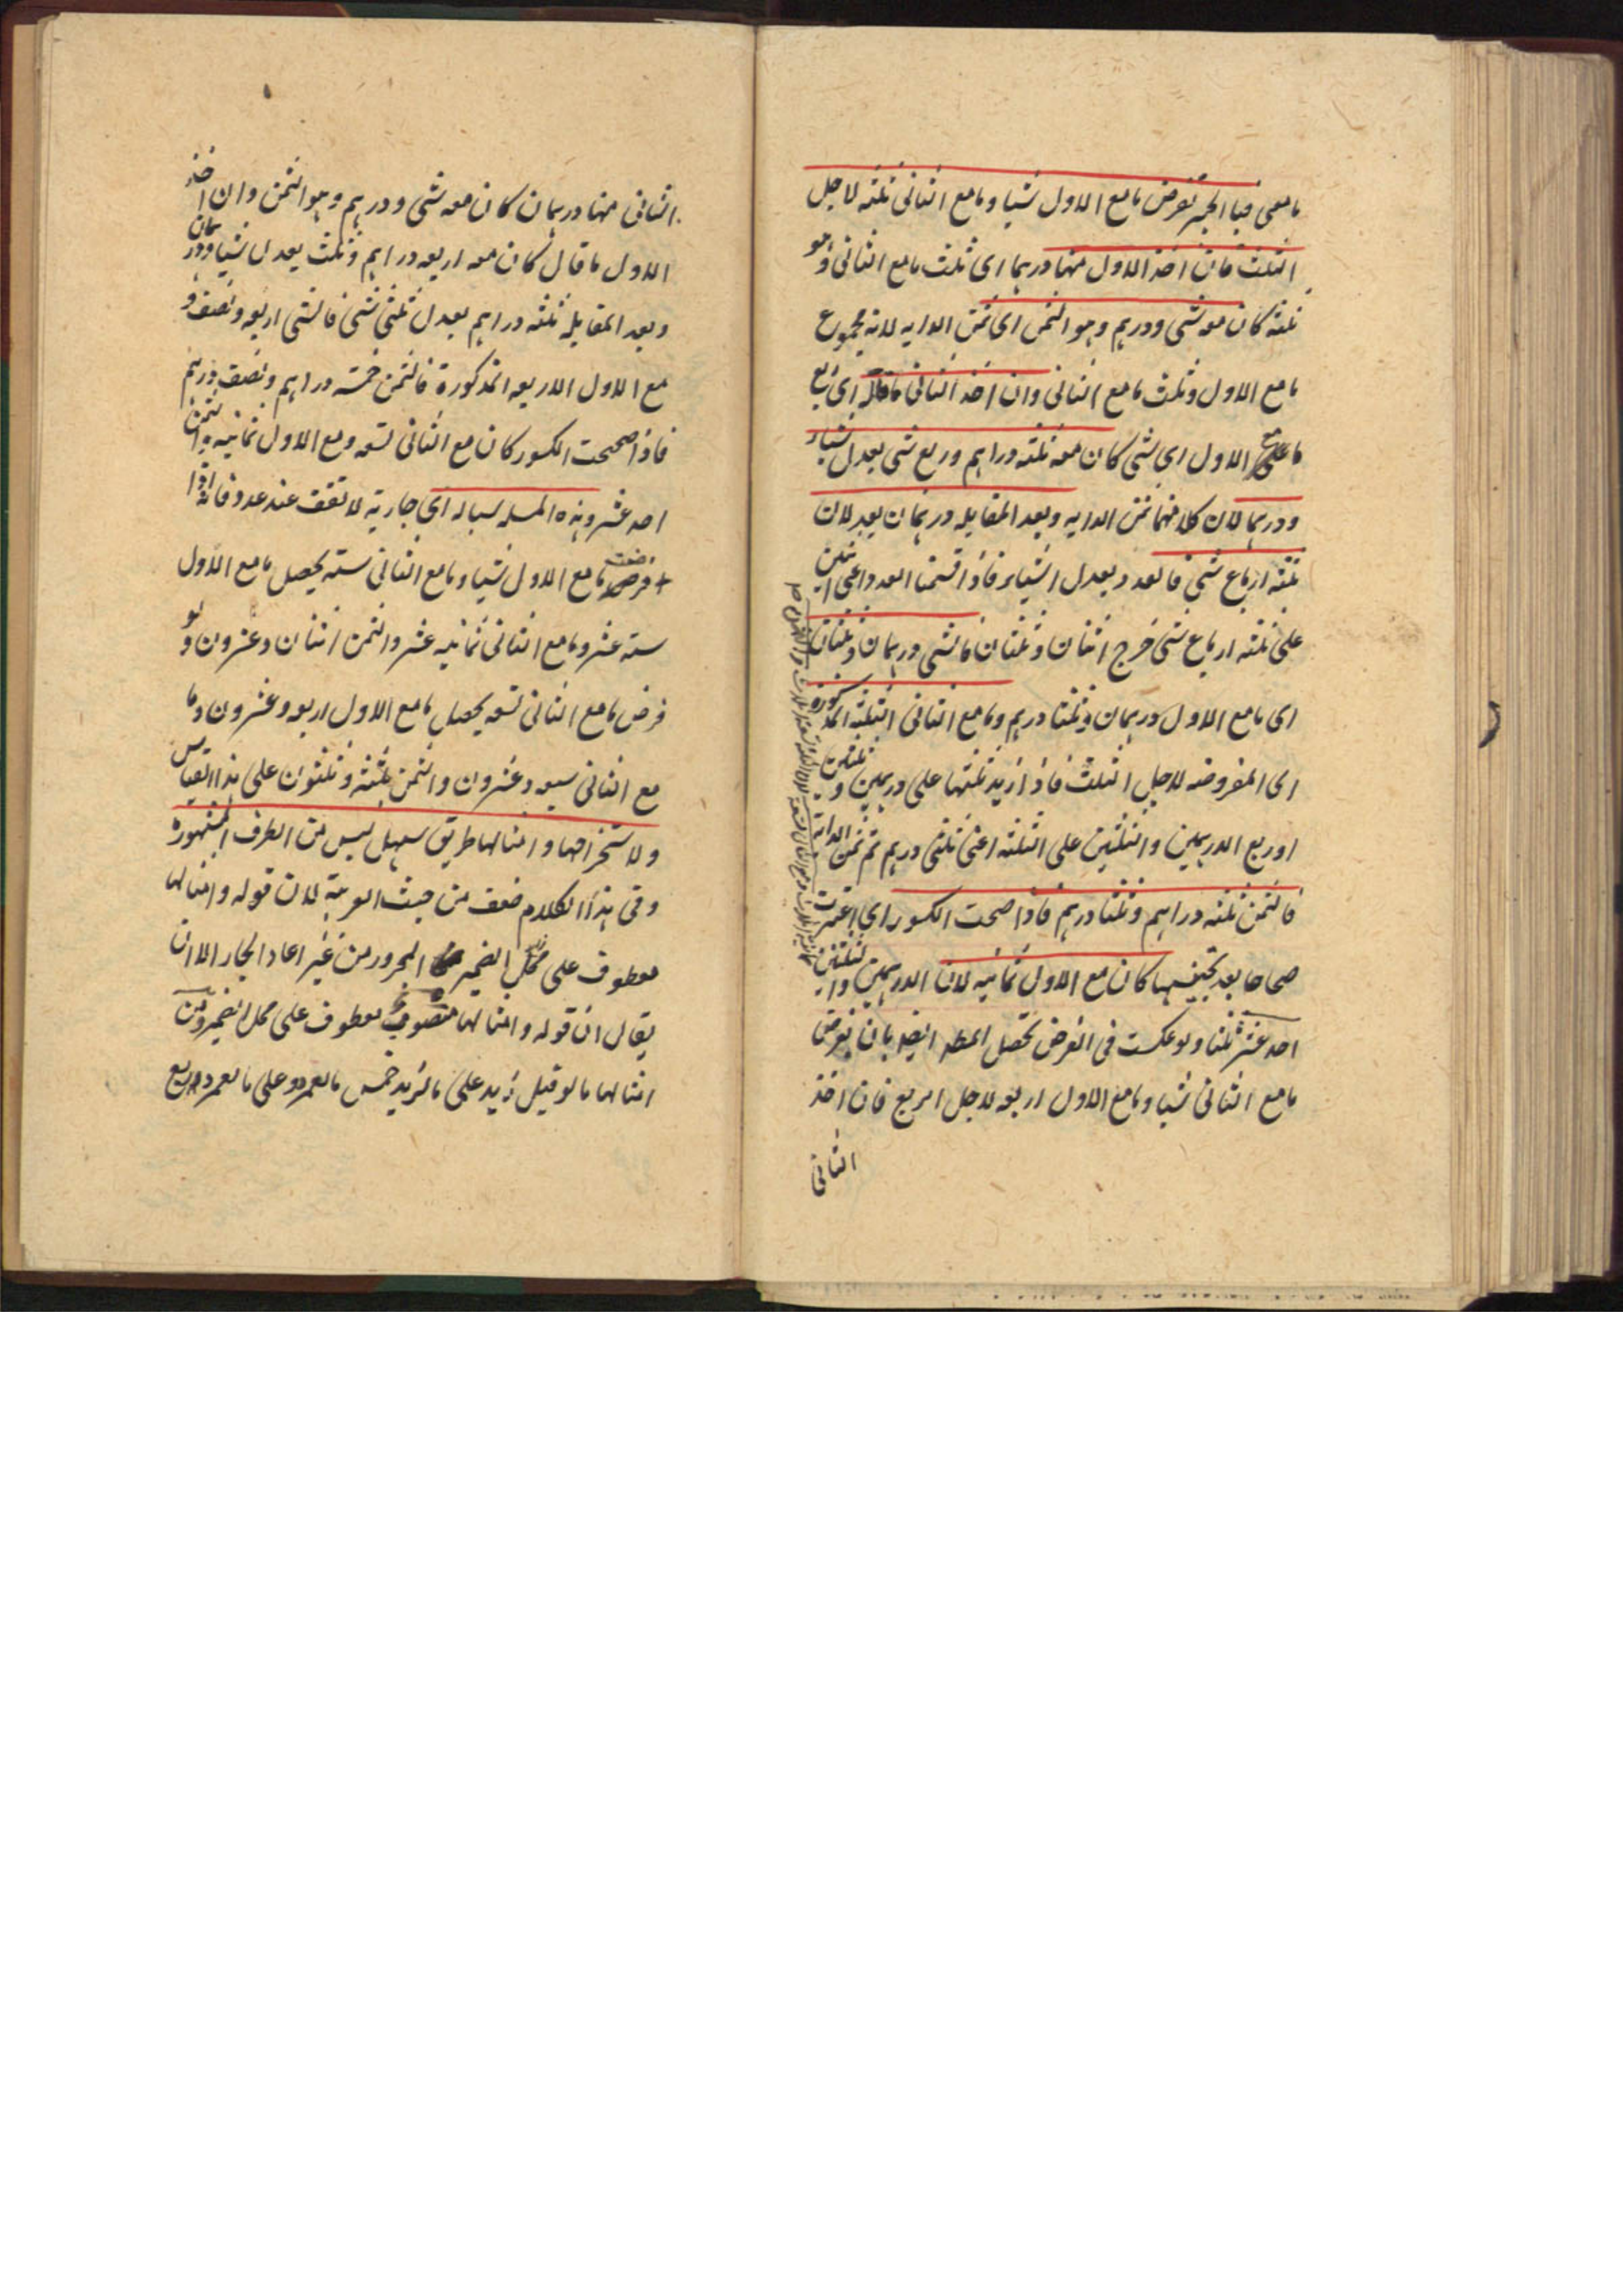 ما معی فبالجبر تفرض ما مع الاول شیئا و ما مع الثانی ثلثه لاجل
الثلث فان اخذ الاول منها درهما ای ثلث ما مع الثانی و هو
ثلثه کان معه شی و درهم و هو الثمن ای ثمن الدابه لانه مجموع
ما مع الاول و ثلث ما مع الثانی و ان اخذ الثانی ما قاله ای ربع
ما مع الاول ای شی کان معه ثلثه دراهم و ربع شی یعدل شیئا
و درهما لان کلا منهما ثمن الدابه و بعد المقابله درهمان یعدلان
ثلثه ارباع شی فالعدد یعدل اشیاء فاذا قسمنا العدد اعنی اثنین
علی ثلثه ارباع شی خرج اثنان و ثلثان فالشی درهمان و ثلثان
ای ما مع الاول درهمان و ثلثا درهم و ما مع الثانی الثلثه المذکوره
ای المفروضه لاجل الثلث فاذا زید ثلثها علی درهمین و ثلثین
او ربع الدرهمین و الثلثین علی الثلثه اعنی ثلثی درهم تم ثمن الدابه
فالثمن ثلثه دراهم و ثلثا درهم فاذا صححت الکسور ای اعتبرت
صحاحا بعد تجنیسها کان مع الاول ثمانیه لان الدرهمین و الثلثین
احد عشر ثلثا و لو عکست فی الفرض تحصل المط ایضا بان تفرض
ما مع الثانی شیئا و ما مع الاول اربعه لاجل الربع فان اخذ
الثانی
الثانی منها درهمان کان معه شی و درهم و هو الثمن و ان اخذ
الاول ما قال کان معه اربعه دراهم و ثلث یعدل شیئا و درهمان
و بعد المقابله ثلثه دراهم یعدل ثلثی شی فالشی اربعه و نصف و
مع الاول الاربعه المذکورة فالثمن خمسه دراهم و نصف درهم
فاذا صححت الکسور کان مع الثانی تسعه و مع الاول ثمانیه و الثمن
احد عشر و هذه المسله سیاله ای جاریة لا تقف عند عدد فانه اذا
فرضت ما مع الاول شیئا و ما مع الثانی سته یحصل ما مع الاول
سته عشر و ما مع الثانی ثمانیه عشر و الثمن اثنان و عشرون و لو
فرض ما مع الثانی تسعه یحصل ما مع الاول اربعه و عشرون و ما
مع الثانی سبعه و عشرون و الثمن ثلثة و ثلثون علی هذا القیاس
و لاستخراجها و امثالها طریق سهل لیس من الطرف المشهوره
و فی هذا الکلام ضعف من حیث العربیة لان قوله و امثالها
معطوف علی محل الضمیر المجرور من غیر اعاد الجار الا ان
یقال ان قوله و امثالها منصوب معطوف علی محل الضمیر و من
امثالها ما لو قیل زید علی ما لزید خمس ما لعمرو و علی ما لعمرو ربع